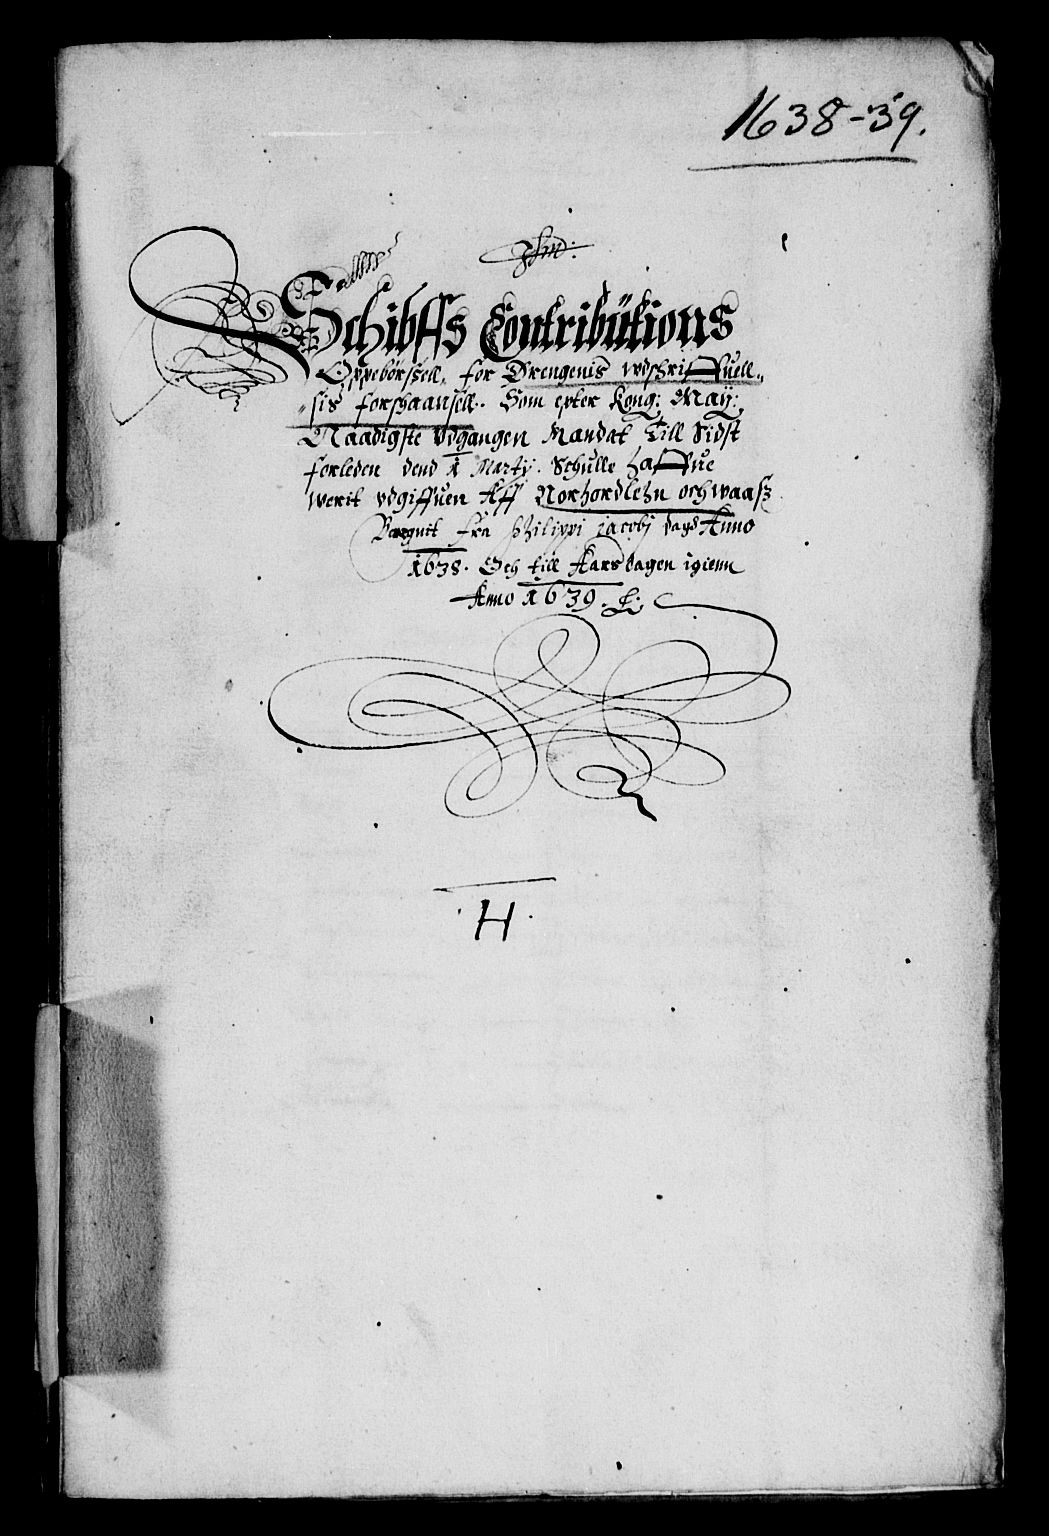 1638-39.
Schibffs Contributions
Oppebörssell, for Drengenis wdschriffuell„
„sis forschaansell. Som epter Kong: May:
Naadigste Vdgangen Mandat Till Sidst
forleden dend 1 Marty. Schulle haffue
werit vdgiffuen Aff Norhordlehn och waasz
Beregnit fra Philippi jacobj dags Anno
1638. Och till Aarsdagen igienn
Anno 1639.
H